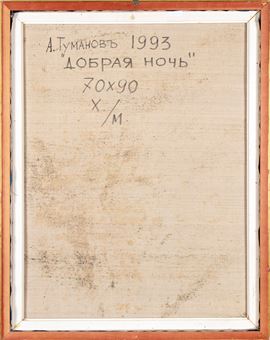 А.Тумановъ 1993
"ДОБРАЯ НОЧЬ"
70x90
Х/М